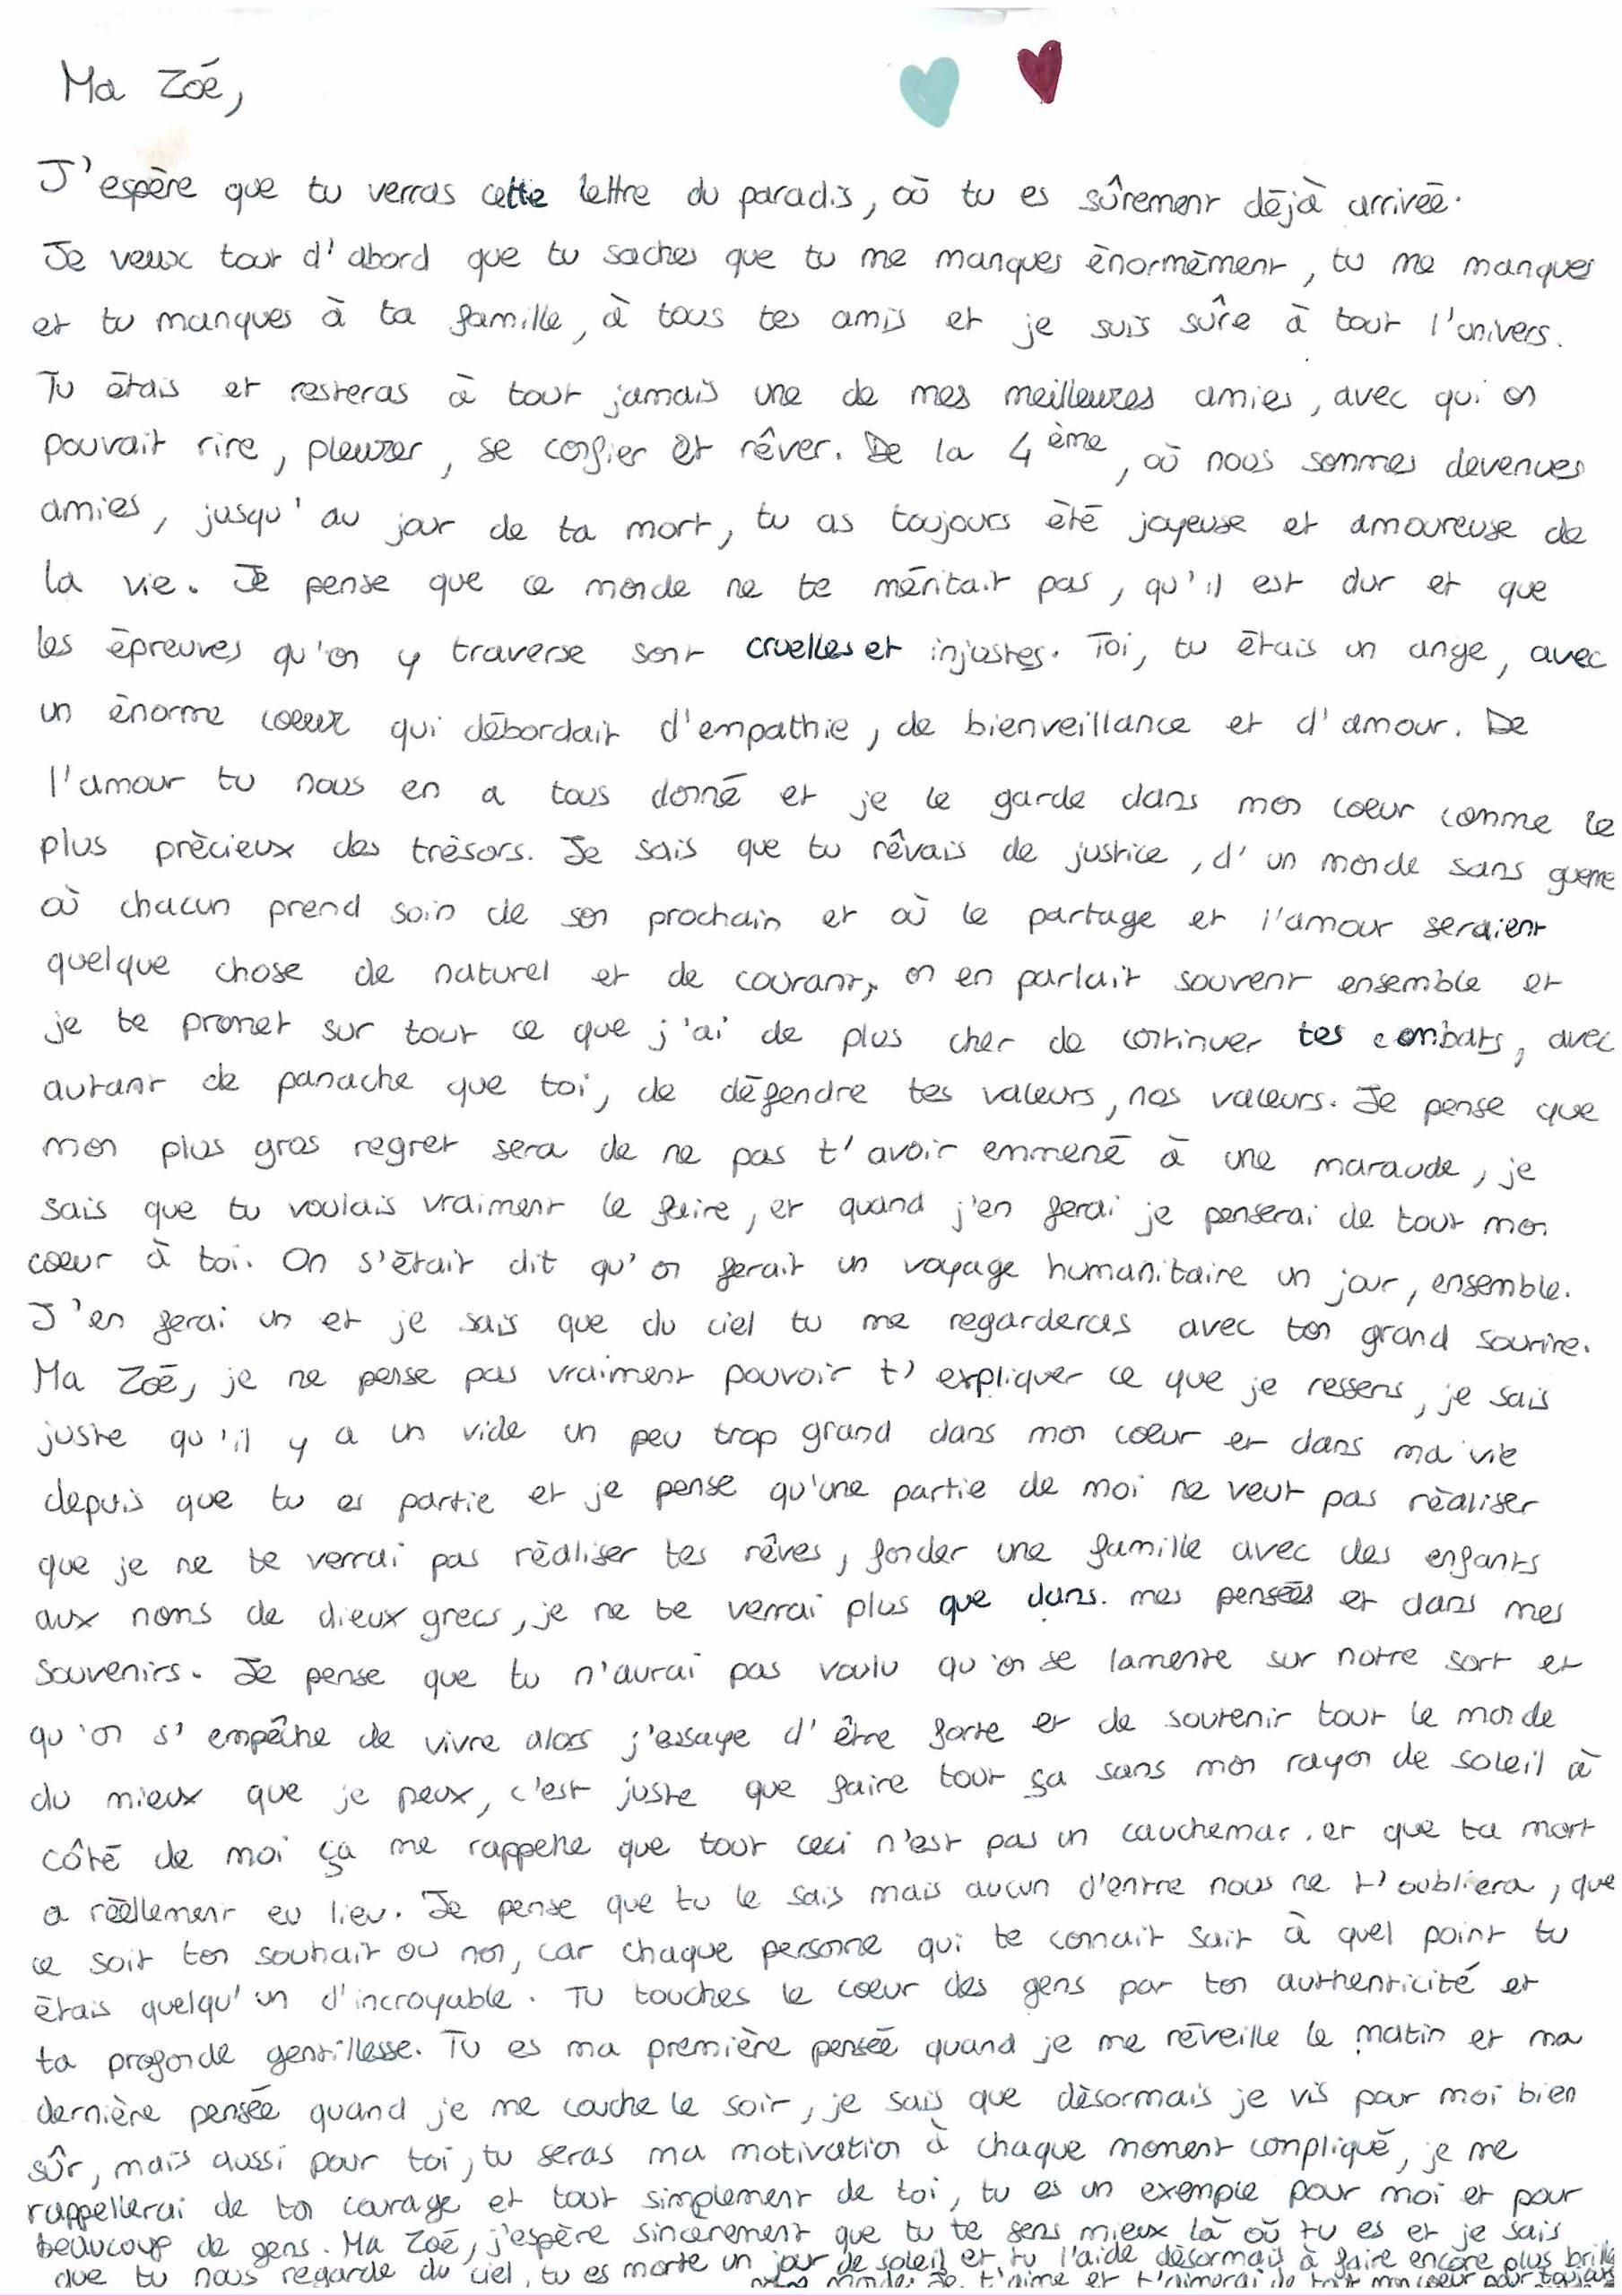 Ma Zoé,
J'espère que tu verras cette lettre du paradis, où tu es sûrement déjà arrivée.
Je veux tout d'abord que tu saches que tu me manques énormément, tu me manques
et tu manques à ta famille, à tous tes amis et je suis sûre à tout l'univers.
Tu étais et resteras à tout jamais une de mes meilleures amies, avec qui on
pouvait rire, pleurer, se confier et rêver. De la 4ème, où nous sommes devenues
amies, jusqu'au jour de ta mort, tu as toujours été joyeuse et amoureuse de
la vie. Je pense que ce monde ne te méritait pas, qu'il est dur et que
les épreuves qu'on y traverse sont cruelles et injustes. Toi, tu étais un ange, avec
un énorme coeur qui débordait d'empathie, de bienveillance et d'amour. De
l'amour tu nous en a tous donné et je le garde dans mon coeur comme le
plus précieux des trésors. Je sais que tu rêvais de justice, d'un monde sans guerre
où chacun prend soin de son prochain et où le partage et l'amour seraient
quelque chose de naturel et de courant, on en parlait souvent ensemble et
je te promet sur tout ce que j'ai de plus cher de continuer tes combats, avec
autant de panache que toi, de défendre tes valeurs, nos valeurs. Je pense que
mon plus gros regret sera de ne pas t'avoir emmené à une maraude, je
sais que tu voulais vraiment le faire, et quand j'en ferai je penserai de tout mon
coeur à toi. On s'était dit qu'on ferait un voyage humanitaire un jour, ensemble.
J'en ferai un et je sais que du ciel tu me regarderas avec ton grand sourire.
Ma Zoé, je ne pense pas vraiment pouvoir t'expliquer ce que je ressens, je sais
juste qu'il y a un vide un peu trop grand dans mon coeur et dans ma vie
depuis que tu es partie et je pense qu'une partie de moi ne veut pas réaliser
que je ne te verrai pas réaliser tes rêves, fonder une famille avec des enfants
aux noms de dieux grecs, je ne te verrai plus que dans mes pensées et dans mes
souvenirs. Je pense que tu n'aurai pas voulu qu'on se lamente sur notre sort et
qu'on s'empêche de vivre alors j'essaye d'être forte et de soutenir tout le monde
du mieux que je peux, c'est juste que faire tout ça sans mon rayon de soleil à
côté de moi ça me rappelle que tout ceci n'est pas un cauchemar. et que ta mort
a réellement eu lieu. Je pense que tu le sais mais aucun d'entre nous ne t'oubliera, que
ce soit ton souhait ou non, car chaque personne qui te connait sait à quel point tu
étais quelqu'un d'incroyable. Tu touches le coeur des gens par ton authenticité et
ta profonde gentillesse. Tu es ma première pensée quand je me réveille le matin et ma
dernière pensée quand je me couche le soir, je sais que désormais je vis pour moi bien
sûr, mais aussi pour toi, tu seras ma motivation à chaque moment compliqué, je me
rappellerai de ton courage et tout simplement de toi, tu es un exemple pour moi et pour
beaucoup de gens. Ma Zoé, j'espère sincèrement que tu te sens mieux là où tu es et je sais
que tu nous regarde du ciel, tu es morte un jour de soleil et tu l'aide désormais à faire encore plus
monde. Je t'aime et t'aimerai de tout mon coeur pour toujours